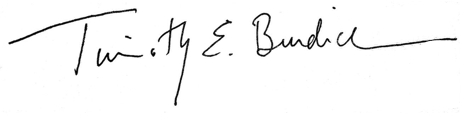 Timothy E. Burdick